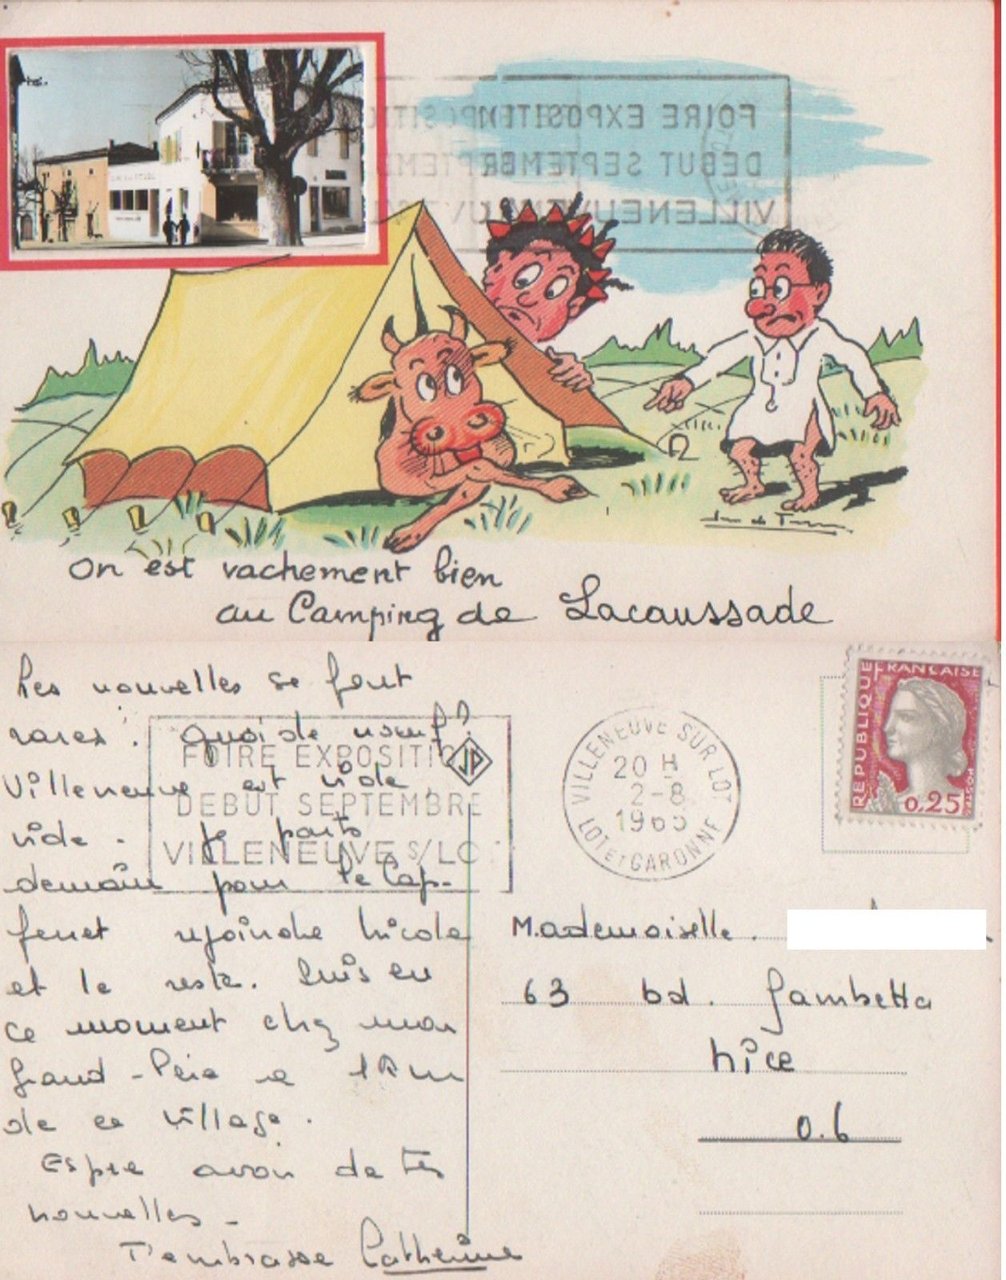 FOIRE EXPOSITION
DEBUT SEPTEMBRE
VILLENEUVE
On est vachement bien
au Camping de Lacaussade
Les nouvelles se font
rares. quoi de neuf?
Villeneuve est vide,
vide. Je parts
demain pour le Cap-
ferret rejoindre Nicole
et le reste. Suis en
ce moment chez mon
Grand-Père a 1 Km
de ce village.
Espère avoir de tes
nouvelles.
T'embrasse Catherine
FOIRE EXPOSITION
DEBUT SEPTEMBRE
VILLENEUVE S/LOT
JP
VILLENEUVE SUR LOT
20 H
2-8
LOT ET GARONNE
REPUBLIQUE FRANÇAISE
POSTES
0,25
Mademoiselle.
63 bd. Gambetta
Nice
0.6